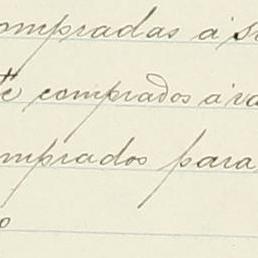 ompradas á
comprados á
mprados para